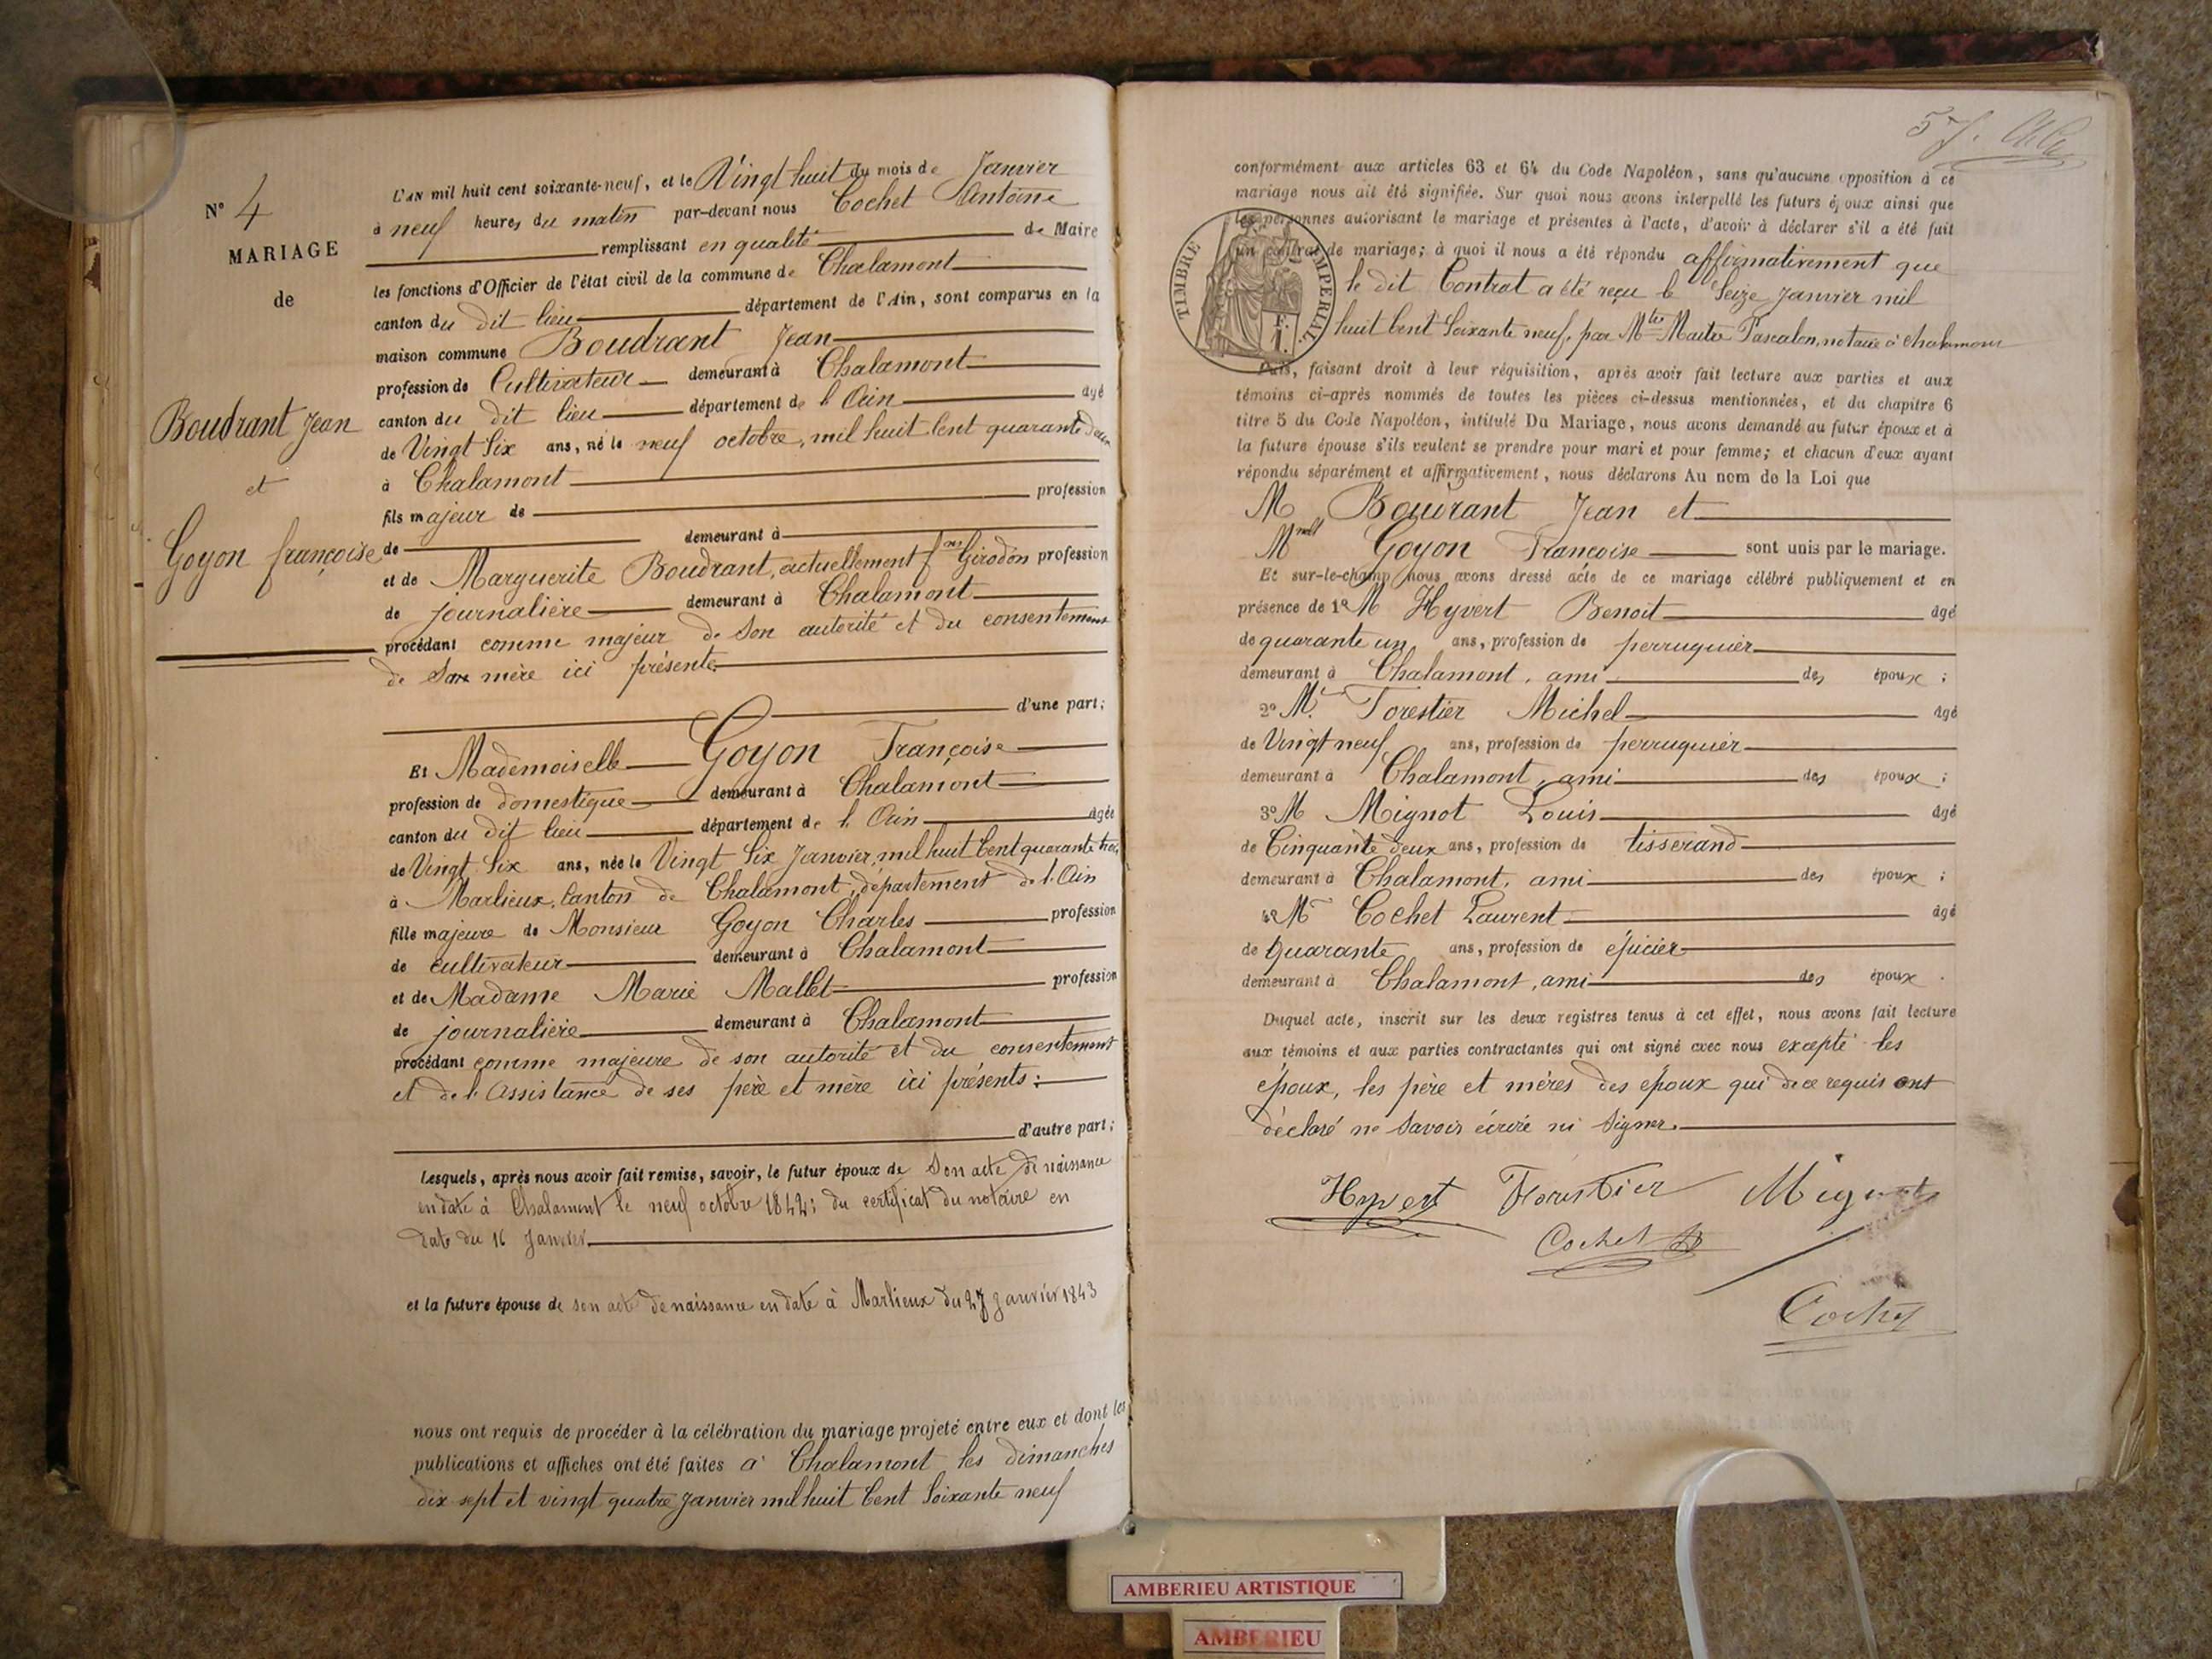 N° 4
MARIAGE
de
Boudrant Jean
et
Goyon françoise
L'AN mil huit cent soixante-neuf, et le Vingt huit du mois de Janvier
à neuf heures du matin par-devant nous Cochet Antoine
remplissant en qualité de Maire
les fonctions d'Officier de l'état civil de la commune de Chalamont
canton du dit lieu département de l'Ain, sont comparus en la
maison commune Boudrant Jean
profession de Cultivateur demeurant à Chalamont
canton du dit lieu département de l'Ain âgé
de Vingt Six ans, né le neuf octobre, mil huit Cent quarante deux
à Chalamont
fils majeur de profession
de demeurant à
et de Marguerite Boudrant, actuellement fme Girodon profession
de journalière demeurant à Chalamont
procédant comme majeur de Son autorité et du consentement
de Sa mère ici présente
d'une part;
Et Mademoiselle Goyon Françoise
profession de domestique demeurant à Chalamont
canton du dit lieu département de l'Ain âgée
de Vingt Six ans, née le Vingt Six Janvier, mil huit Cent quarante trois
à Marlieux, Canton de Chalamont, département de l'Ain
fille majeure de Monsieur Goyon Charles profession
de cultivateur demeurant à Chalamont
et de Madame Marie Mallet profession
de journalière demeurant à Chalamont
procédant comme majeure de son autorité et du consentement
et de l'Assistance de ses père et mère ici présents;
d'autre part;
Lesquels, après nous avoir fait remise, savoir, le futur époux de Son acte de naissance
en date à Chalamont le neuf octobre 1842; du certificat du notaire en
date du 16 Janvier
et la future épouse de son acte de naissance en date à Marlieux du 27 Janvier 1843
nous ont requis de procéder à la célébration du mariage projeté entre eux et dont les
publications et affiches ont été faites à Chalamont les dimanches
dix sept et vingt quatre Janvier mil huit Cent Soixante neuf
conformément aux articles 63 et 64 du Code Napoléon, sans qu'aucune opposition à ce
mariage nous ait été signifiée. Sur quoi nous avons interpellé les futurs époux ainsi que
les personnes autorisant le mariage et présentes à l'acte, d'avoir à déclarer s'il a été fait
un contrat de mariage; à quoi il nous a été répondu affirmativement que
le dit Contrat a été reçu le Seize Janvier mil
huit Cent Soixante neuf, par Mtre Maitre Pascalon, notaire à Chalamont
TIMBRE IMPERIAL
Puis, faisant droit à leur réquisition, après avoir fait lecture aux parties et aux
témoins ci-après nommés de toutes les pièces ci-dessus mentionnées, et du chapitre 6
titre 5 du Code Napoléon, intitulé Du Mariage, nous avons demandé au futur époux et à
la future épouse s'ils veulent se prendre pour mari et pour femme; et chacun d'eux ayant
répondu séparément et affirmativement, nous déclarons Au nom de la Loi que
M Boudrant Jean et
Mmell Goyon Francoise sont unis par le mariage.
Et sur-le-champ nous avons dressé acte de ce mariage célébré publiquement et en
présence de 1° M Hyvert Benoit âgé
de quarante un ans, profession de perruquier
demeurant à Chalamont, ami des époux ;
2° Mr Forestier Michel âgé
de Vingt neuf ans, profession de perruquier
demeurant à Chalamont, ami des époux ;
3° M Mignot Louis âgé
de Cinquante deux ans, profession de tisserand
demeurant à Chalamont, ami des époux ;
4° Mr Cochet Laurent âgé
de quarante ans, profession de épicier
demeurant à Chalamont, ami des époux .
Duquel acte, inscrit sur les deux registres tenus à cet effet, nous avons fait lecture
aux témoins et aux parties contractantes qui ont signé avec nous excepté les
époux, les père et mères des époux qui de ce requis ont
déclaré ne Savoir écrire ni Signer.
Hyvert Forestier Mignot
Cochet
Cochet
AMBERIEU ARTISTIQUE
AMBERIEU